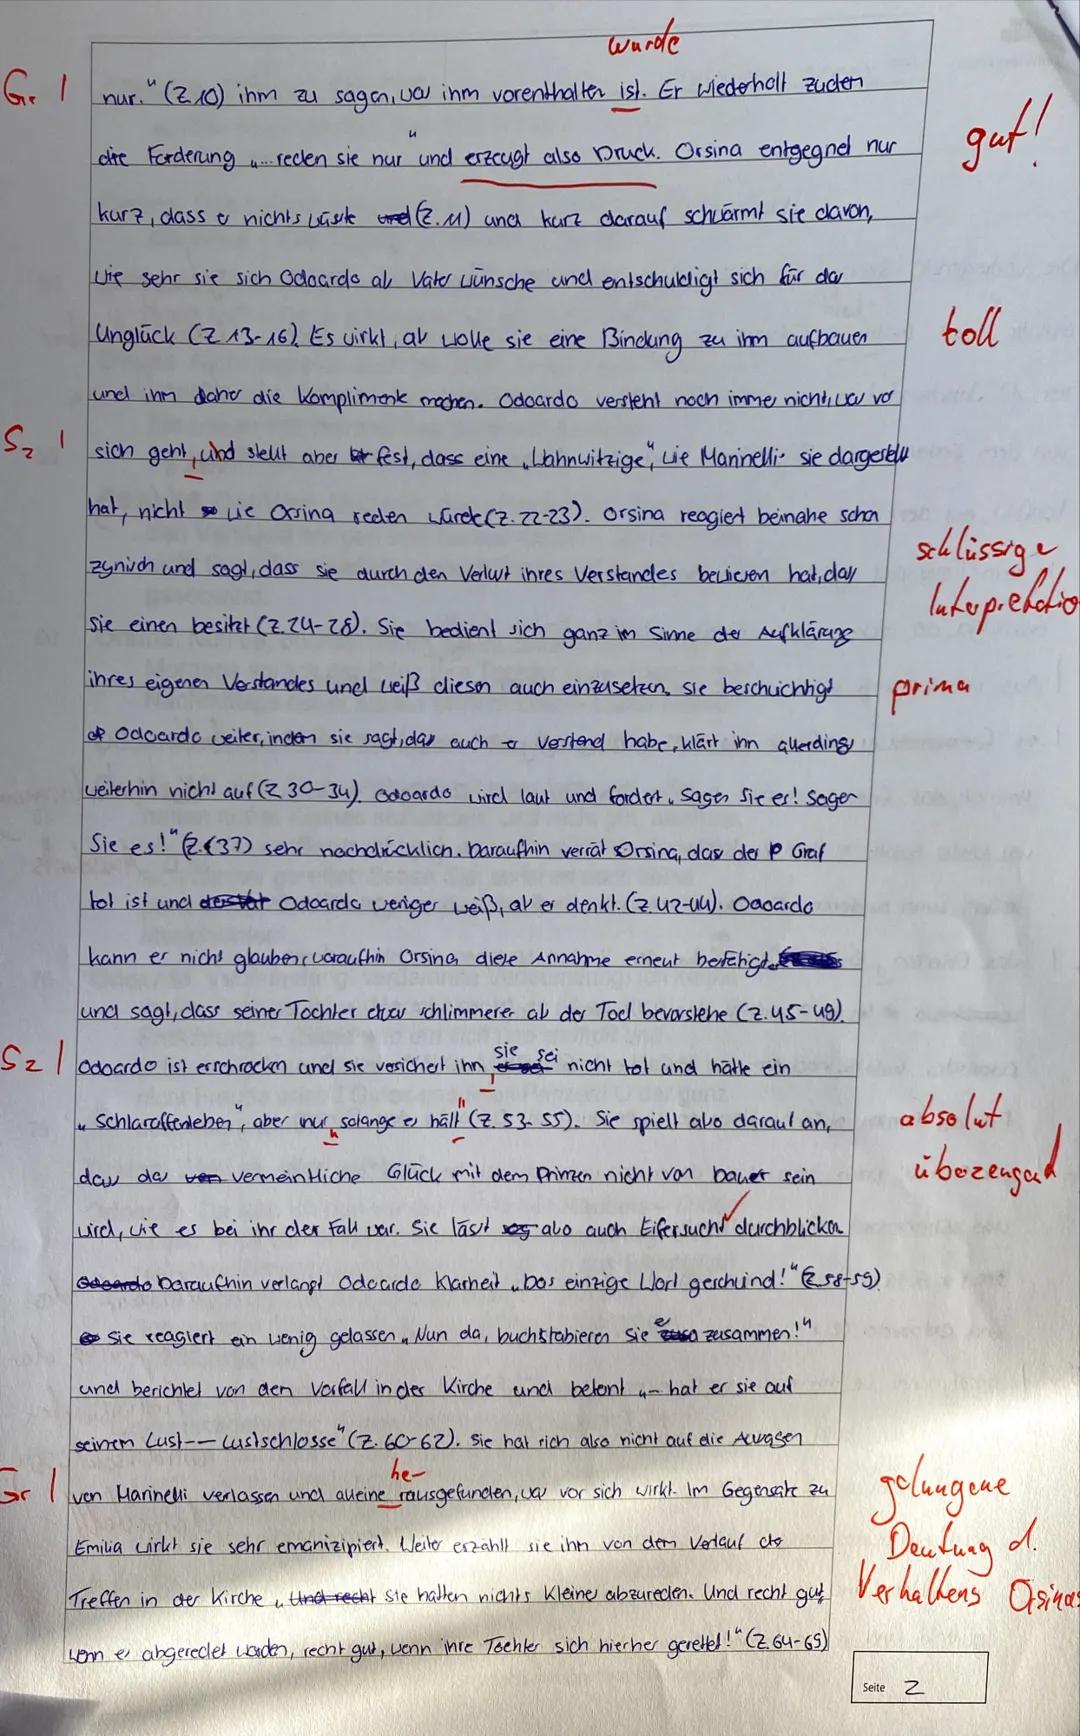 wurde
Gr | nur." (Z.10) ihm zu sagen, was ihm vorenthalten ist. Er wiederholt zudem
die Forderung „... reden sie nur" und erzeugt also Druck. Orsina entgegnet nur
gut!
kurz, dass er nichts wüsste und (Z.11) und kurz darauf schwärmt sie davon,
wie sehr sie sich Odoardo als Vater wünsche und entschuldigt sich für das
Unglück (Z 13-16). Es wirkt, als wolle sie eine Bindung zu ihm aufbauen
toll
und ihm daher die Komplimente machen. Odoardo versteht noch immer nicht, was vor
Sz | sich geht, und stellt aber fest, dass eine „Wahnwitzige", wie Marinelli sie dargestellt
hat, nicht so wie Orsina reden würde (Z. 22-23). Orsina reagiert beinahe schon
schlüssige Interpretatio
zynisch und sagt, dass sie durch den Verlust ihres Verstandes bewiesen hat, dass
sie einen besitzt (Z.24-28). Sie bedient sich ganz im Sinne der Aufklärung
ihres eigenen Verstandes und weiß diesen auch einzusetzen. Sie beschwichtigt
prima
Odoardo weiter, indem sie sagt, dass auch er Verstand habe, klärt ihn allerdings
weiterhin nicht auf (Z 30-34). Odoardo wird laut und fordert „Sagen Sie es! Sagen
Sie es!" (Z.37) sehr nachdrücklich. Daraufhin verrät Orsina, dass der Graf
tot ist und Odoardo weniger weiß, als er denkt. (Z.42-44). Odoardo
kann es nicht glauben, woraufhin Orsina diese Annahme erneut bestätigt
und sagt, dass seiner Tochter etwas schlimmeres als der Tod bevorstehe (Z.45-49).
Sz | Odoardo ist erschrocken und sie versichert ihm sie sei nicht tot und hätte ein
„Schlaraffenleben", aber nur „solange es hält" (Z. 53-55). Sie spielt also darauf an,
absolut überzeugend
dass das vermeintliche Glück mit dem Prinzen nicht von Dauer sein
wird, wie es bei ihr der Fall war. Sie lässt also auch Eifersucht durchblicken
Odoardo Daraufhin verlangt Odoardo Klarheit „Das einzige Wort geschwind!" (Z 58-59)
Sie reagiert ein wenig gelassen „Nun da, buchstabieren Sie es zusammen!"
und berichtet von dem Vorfall in der Kirche und betont „- hat er sie auf
seinem Lust-- Lustschlosse" (Z. 60-62). Sie hat sich also nicht auf die Aussagen
he-
Gr | von Marinelli verlassen und alleine rausgefunden, was vor sich wirkt. Im Gegensatz zu
gelungene Deutung d. Verhaltens Orsinas
Emilia wirkt sie sehr emanizipiert. Weiter erzählt sie ihm von dem Verlauf des
Treffen in der Kirche „Und recht Sie hatten nichts Kleines abzureden. Und recht gut,
wenn es abgeredet worden, recht gut, wenn ihre Tochter sich hierher gerettet!" (Z 64-65)
Seite 2